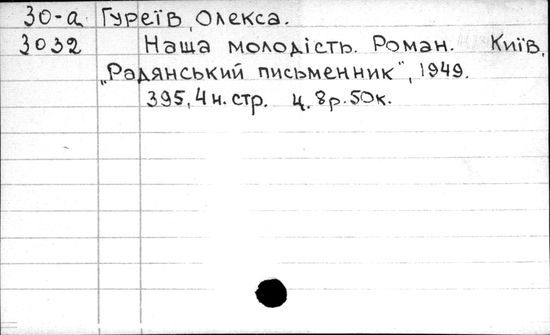 30-а Гуреїв, Олекса.
3032 Наша молодість. Роман. Київ,
„Радянський письменник", 1949.
395, 4 н. стр. ц. 8 р. 50 к.